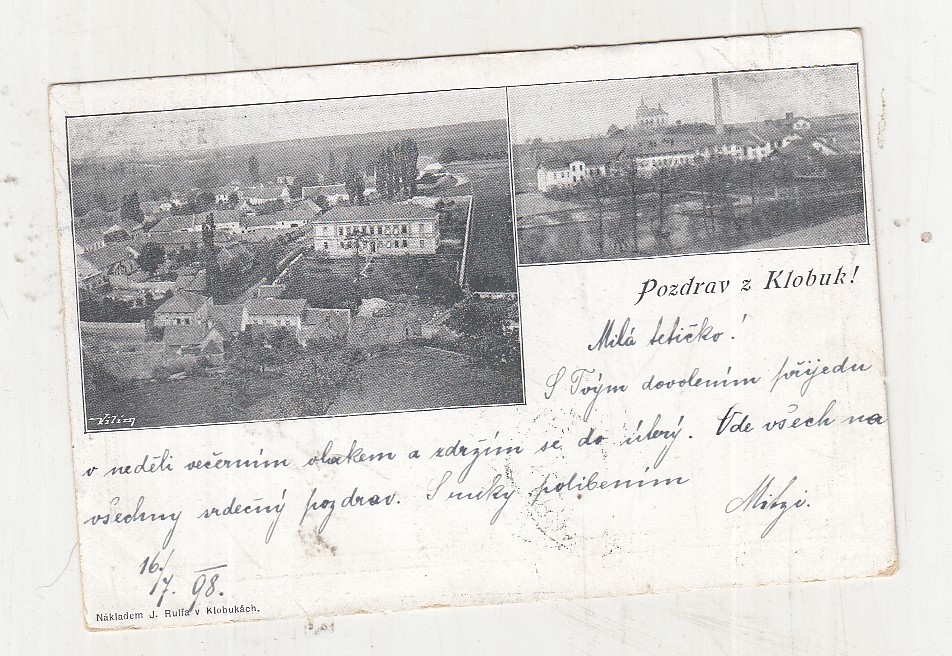 Pozdrav z Klobuk!
Milá tetičko!
S Tvým dovolením přijedu
v neděli večerním vlakem a zdržím se do úterý. Ode všech na
všechny srdečný pozdrav. S ruky políbením
Mitzi.
16./
7. 98.
Nákladem J. Rulfa v Klobukách.